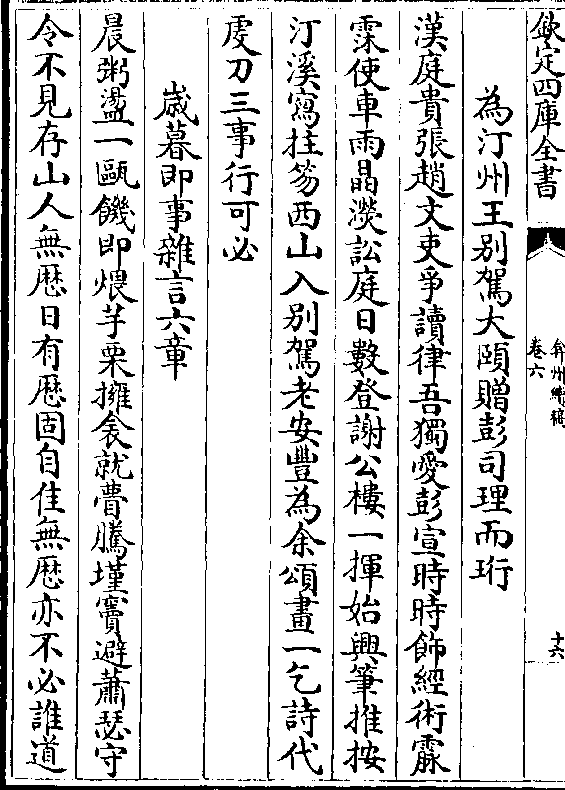 欽定四庫全書
弇州續稿
卷六
十六
為汀州王別駕大頤贈彭司理而珩
漢庭貴張趙文吏爭讀律吾獨愛彭宣時時飾經術霢
霂使車雨晶淡訟庭日數登謝公樓一揮始興筆推按
汀溪寫拄笏西山入別駕老安豐為余頌畫一乞詩代
虔刀三事行可必
歳暮即事雜言六章
晨粥盪一甌饑即煨芋栗擁衾就瞢騰墐竇避蕭瑟守
令不見存山人無厯日有厯固自佳無厯亦不必誰道